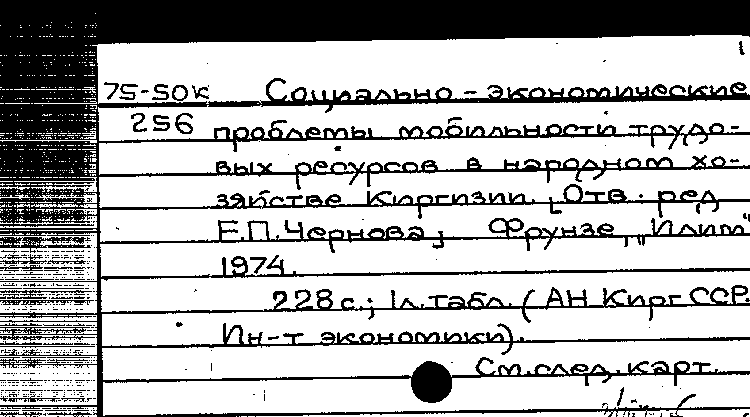 1
75-50к Социально-экономические
256 проблемы мобильности трудо-
вых ресурсов в народном хо-
зяйстве Киргизии. [Отв. ред
Е.П.Чернова], Фрунзе, "Илим"
1974.
228с.; 1л.табл. (АН Кирг ССР.
Ин-т экономики).
См.след.карт.